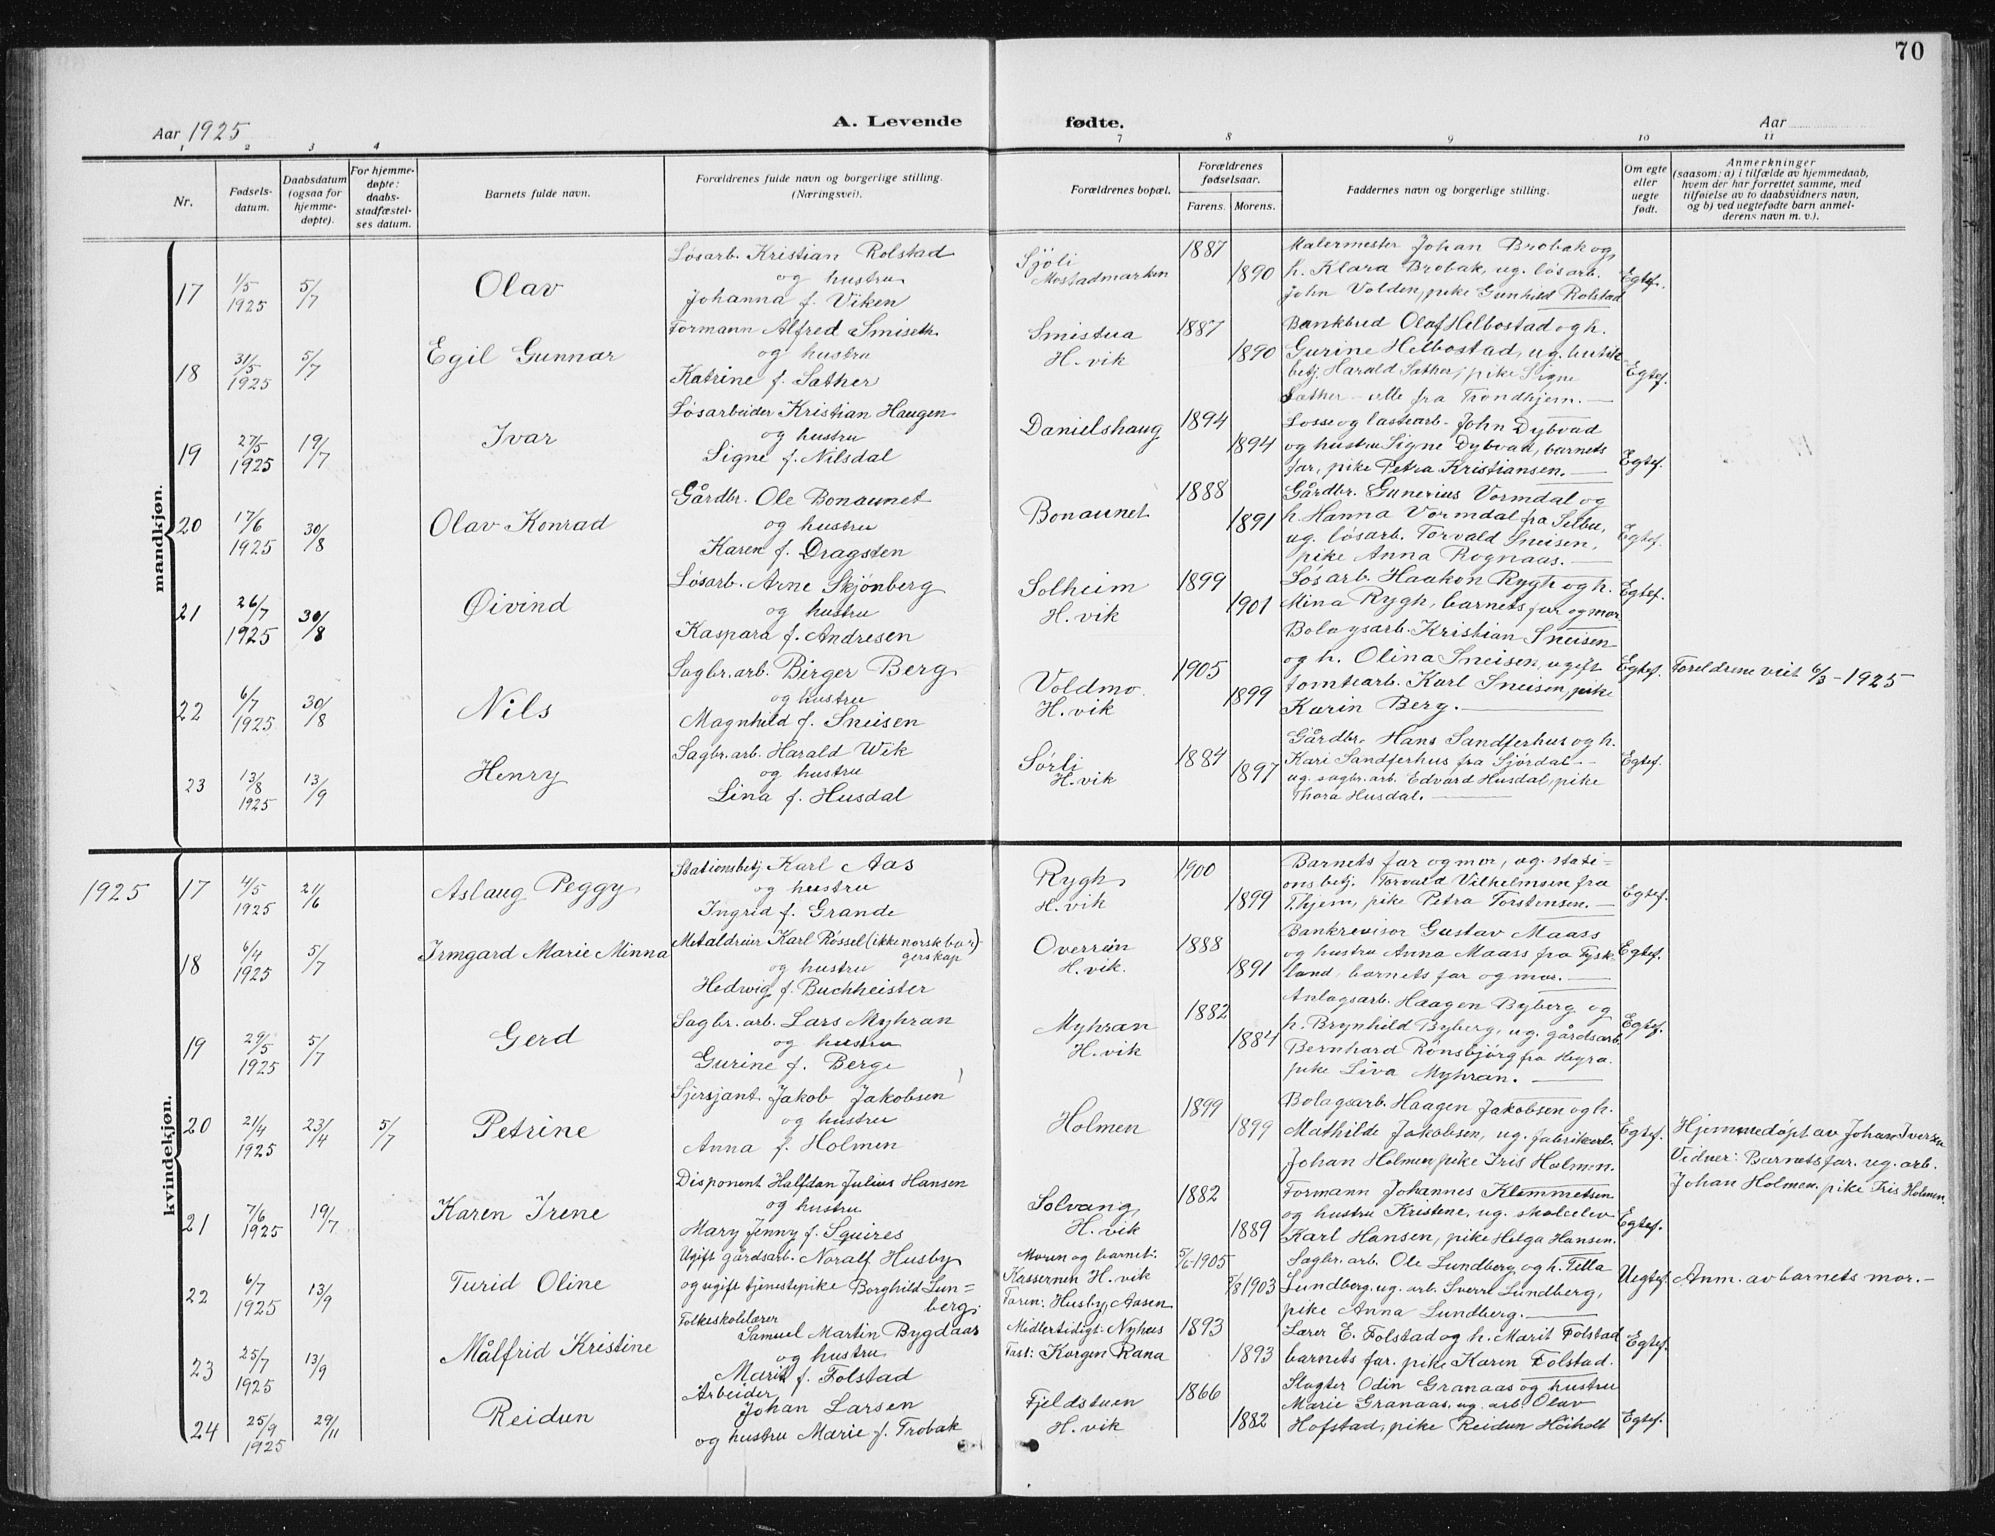 70
Aar 1925
A. Levende
fødte.
Aar
1 2 3 4 7 8 9 10 11
Nr.
Fødsels-
datum.
Daabsdatum
(ogsaa for
hjemme-
døpte).
For hjemme-
døpte:
daabs-
stadfæstel-
ses datum.
Barnets fulde navn.
Forældrenes fulde navn og borgerlige stilling.
(Næringsvei).
Forældrenes bopæl.
Forældrenes
fødselsaar.
Farens. Morens.
Faddernes navn og borgerlige stilling.
Om egte
eller
uegte
født.
Anmerkninger
(saasom: a) i tilfælde av hjemmedaab,
hvem der har forrettet samme, med
tilføielse av to daabsvidners navn,
og b) ved uegtefødte barn anmel-
derens navn m. v.).
mandkjøn.
17 1/5 1925 5/7 Olav
Løsarb. Kristian Rolstad
og hustru
Johanna f. Viken
Sjöli
Mostadmarken
1887 1890
Malermester Johan Brobak og
h. Klara Brobak, ug. løsarb.
John Volden, pike Gunhild Rolstad
Egtef.
18 31/5 1925 5/7 Egil Gunnar
Formann Alfred Smiseth
og hustru
Katrine f. Sæther
Smistua
H.vik
1887 1890
Bankbud Olaf Helbostad og h.
Gurine Helbostad, ug. butik-
betj. Harald Sæther, pike Signe
Sæther - alle fra Trondhjem. —
Egtef.
19 27/5 1925 19/7 Ivar
Løsarbeider Kristian Haugen
og hustru
Signe f. Nilsdal
Danielshaug
1894 1894
Losse og lastearb. John Dybvad
og hustru Signe Dybvad, barnets
far, pike Petra Kristiansen. —
Egtef.
20 17/6 1925 30/8 Olav Konrad
Gårdbr. Ole Bonaunet
og hustru
Karen f. Dragsten
Bonaunet
1888 1891
Gårdbr. Gunerius Vormdal og
h. Hanna Vormdal fra Selbu,
ug. løsarb. Torvald Sneisen,
pike Anna Rognaas. —
Egtef.
21 26/7 1925 30/8 Øivind
Løsarb. Arne Skjönberg
og hustru
Kaspara f. Andresen
Solheim
H.vik
1899 1901
Løsarb. Haakon Rygh og h.
Mina Rygh, barnets far og mor
Egtef.
22 6/7 1925 30/8 Nils
Sagbr.arb. Birger Berg
og hustru
Magnhild f. Sneisen
Voldmo
H.vik
1905 1899
Bolagsarb. Kristian Sneisen
og h. Olina Sneisen, ugift
tomtearb. Karl Sneisen, pike
Karin Berg. —
Egtef.
Foreldrene viet 6/3 - 1925
23 13/8 1925 13/9 Henry
Sagbr.arb. Harald Wik
og hustru
Lina f. Husdal
Sørli
H.vik
1884 1897
Gårdbr. Hans Sandferhus og h.
Kari Sandferhus fra Sjördal -
ug. sagbr. arb. Edvard Husdal, pike
Thora Husdal. —
Egtef.
1925
kvindekjøn.
17 4/5 1925 21/6 Aslaug Peggy
Stationsbetj Karl Aas
og hustru
Ingrid f. Grande
Rygh
H.vik
1900 1899
Barnets far og mor, ug. stati-
onsbetj. Torvald Vilhelmsen fra
Thjem, pike Petra Torstensen. —
Egtef.
18 6/4 1925 5/7 Irmgard Marie Minna
Metaldreier Karl Røssel (ikke norsk bor-
gerskap)
og hustru
Hedwig f. Buchheister
Overrün
H.vik.
1888 1891
Bankrevisor Gustav Maass
og hustru Anna Maass fra Tysk-
land, barnets far og mor. —
Egtef.
19 29/5 1925 5/7 Gerd
Sagbr. arb. Lars Myhran
og hustru
Gurine f. Berge
Myhran
H.vik
1882 1884
Anlagsarb. Haagen Byberg og
h. Brynhild Byberg, ug. gårdsarb.
Bernhard Rönsbjörg fra Hegra.
pike Liva Myhran. —
Egtef.
20 21/4 1925 23/4 5/7 Petrine
Sjersjant Jakob Jakobsen
og hustru
Anna f. Holmen
Holmen
1899 1899
Bolagsarb. Haagen Jakobsen og h.
Mathilde Jakobsen, ug. fabrikarb.
Johan Holmen, pike Iris Holmen.
Egtef.
Hjemmedöpt av Johan Iversen
Vidner: Barnets far. ug. arb.
Johan Holmen. pike Iris Holmen
21 7/6 1925 19/7 Karen Irene
Disponent Halfdan Julius Hansen
og hustru
Mary Jenny f. Squires
Solvang
H.vik
1882 1889
Formann Johannes Klemmetsen
og hustru Kristene, ug. skoleelev
Karl Hansen, pike Helga Hansen.
Egtef.
22 6/7 1925 13/9 Turid Oline
Ugift gårdsarb. Noralf Husby
og ugift tjenestepike Borghild Lun-
berg
Moren og barnet:
Kassernen H. vik
Faren: Husby, Aasen
5/6 1905 5/8 1903
Sagbr. arb. Ole Lundberg og h. Tilla
Lundberg, ug. arb. Sverre Lundberg,
pike Anna Lundberg. —
Uegtef.
Anm. av barnets mor. —
23 25/7 1925 13/9 Målfrid Kristine
Folkeskolelærer
Samuel Martin Bygdaas
og hustru
Marit f. Folstad
Midlertidigt: Nyhus
Fast: Korgen Rana
1893 1893
Lærer E. Folstad og h. Marit Folstad
barnets far. pike Karen Folstad.
Egtef.
24 25/9 1925 29/11 Reidun
Arbeider
Johan Larsen
og hustru Marie f. Trobak
Fjeldstuen
H.vik
1866 1882
Slagter Odin Granaas og hustru
Marie Granaas. ug. arb. Olav
Hofstad, pike Reidun Höiholt
Egtef.